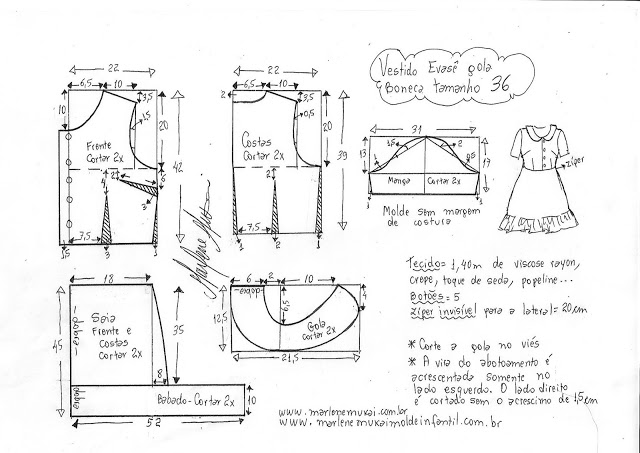 Vestido Evasê gola
Boneca tamanho 36
22
6,5 10
3,5
10
1,5
20
Frente
Cortar 2x
42
2
4
6
3
7,5
1,5
3
1
22
6,5 10
2
3,5
0,5
20
Costas
Cortar 2x
39
2
7,5
1
2
1
31
13
1,5
2
0,5
17
Manga Cortar 2x
1
1
Molde sem margem
de costura
zíper
18
45
-dobra-
Saia
Frente e
Costas
Cortar 2x
35
8
dobra
Babado-Cortar 2x
10
52
6 2 10
-dobra-
12,5
6,5
4
Gola
Cortar 2x
21,5
Marlene Mukai
Tecido= 1,40m de viscose rayon,
crepe, toque de seda, popeline...
Botões= 5
zíper invisível para a lateral= 20cm
* Corte a gola no viés
* A vira do abotoamento é
acrescentada somente no
lado esquerdo. O lado direito
é cortado sem o acrescimo de 1,5cm
www.marlenemukai.com.br
www.marlenemukaimoldeinfantil.com.br